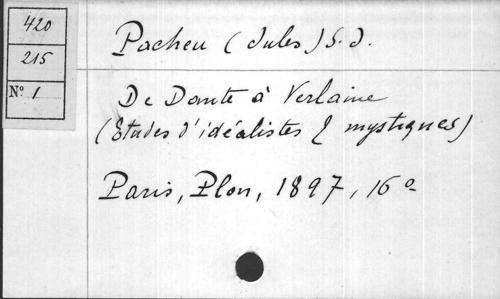 420
215
Nº 1
Pacheu (Jules) S.J.
De Dante à Verlaine
(Etudes d'idéalistes & mystiques)
Paris, Plon, 1897, 16º